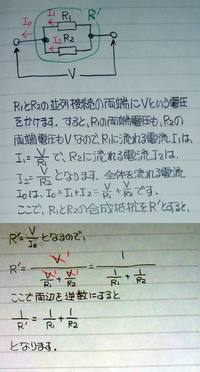 I₀ I₁ R₁ R'
I₂ R₂
V
R₁とR₂の並列接続の両端にVという電圧
をかけます。すると、R₁の両端電圧も、R₂の
両端電圧もVなので、R₁に流れる電流I₁は、
I₁=V/R₁で、R₂に流れる電流I₂は、
I₂=V/R₂となります。全体を流れる電流
I₀は、I₀=I₁+I₂=V/R₁+V/R₂です。
ここで、R₁とR₂の合成抵抗をR'とすると、
R'=V/I₀となるので、
R'=V/(V/R₁+V/R₂)=1/(1/R₁+1/R₂)
ここで両辺を逆数にすると
1/R'=1/R₁+1/R₂
となります。